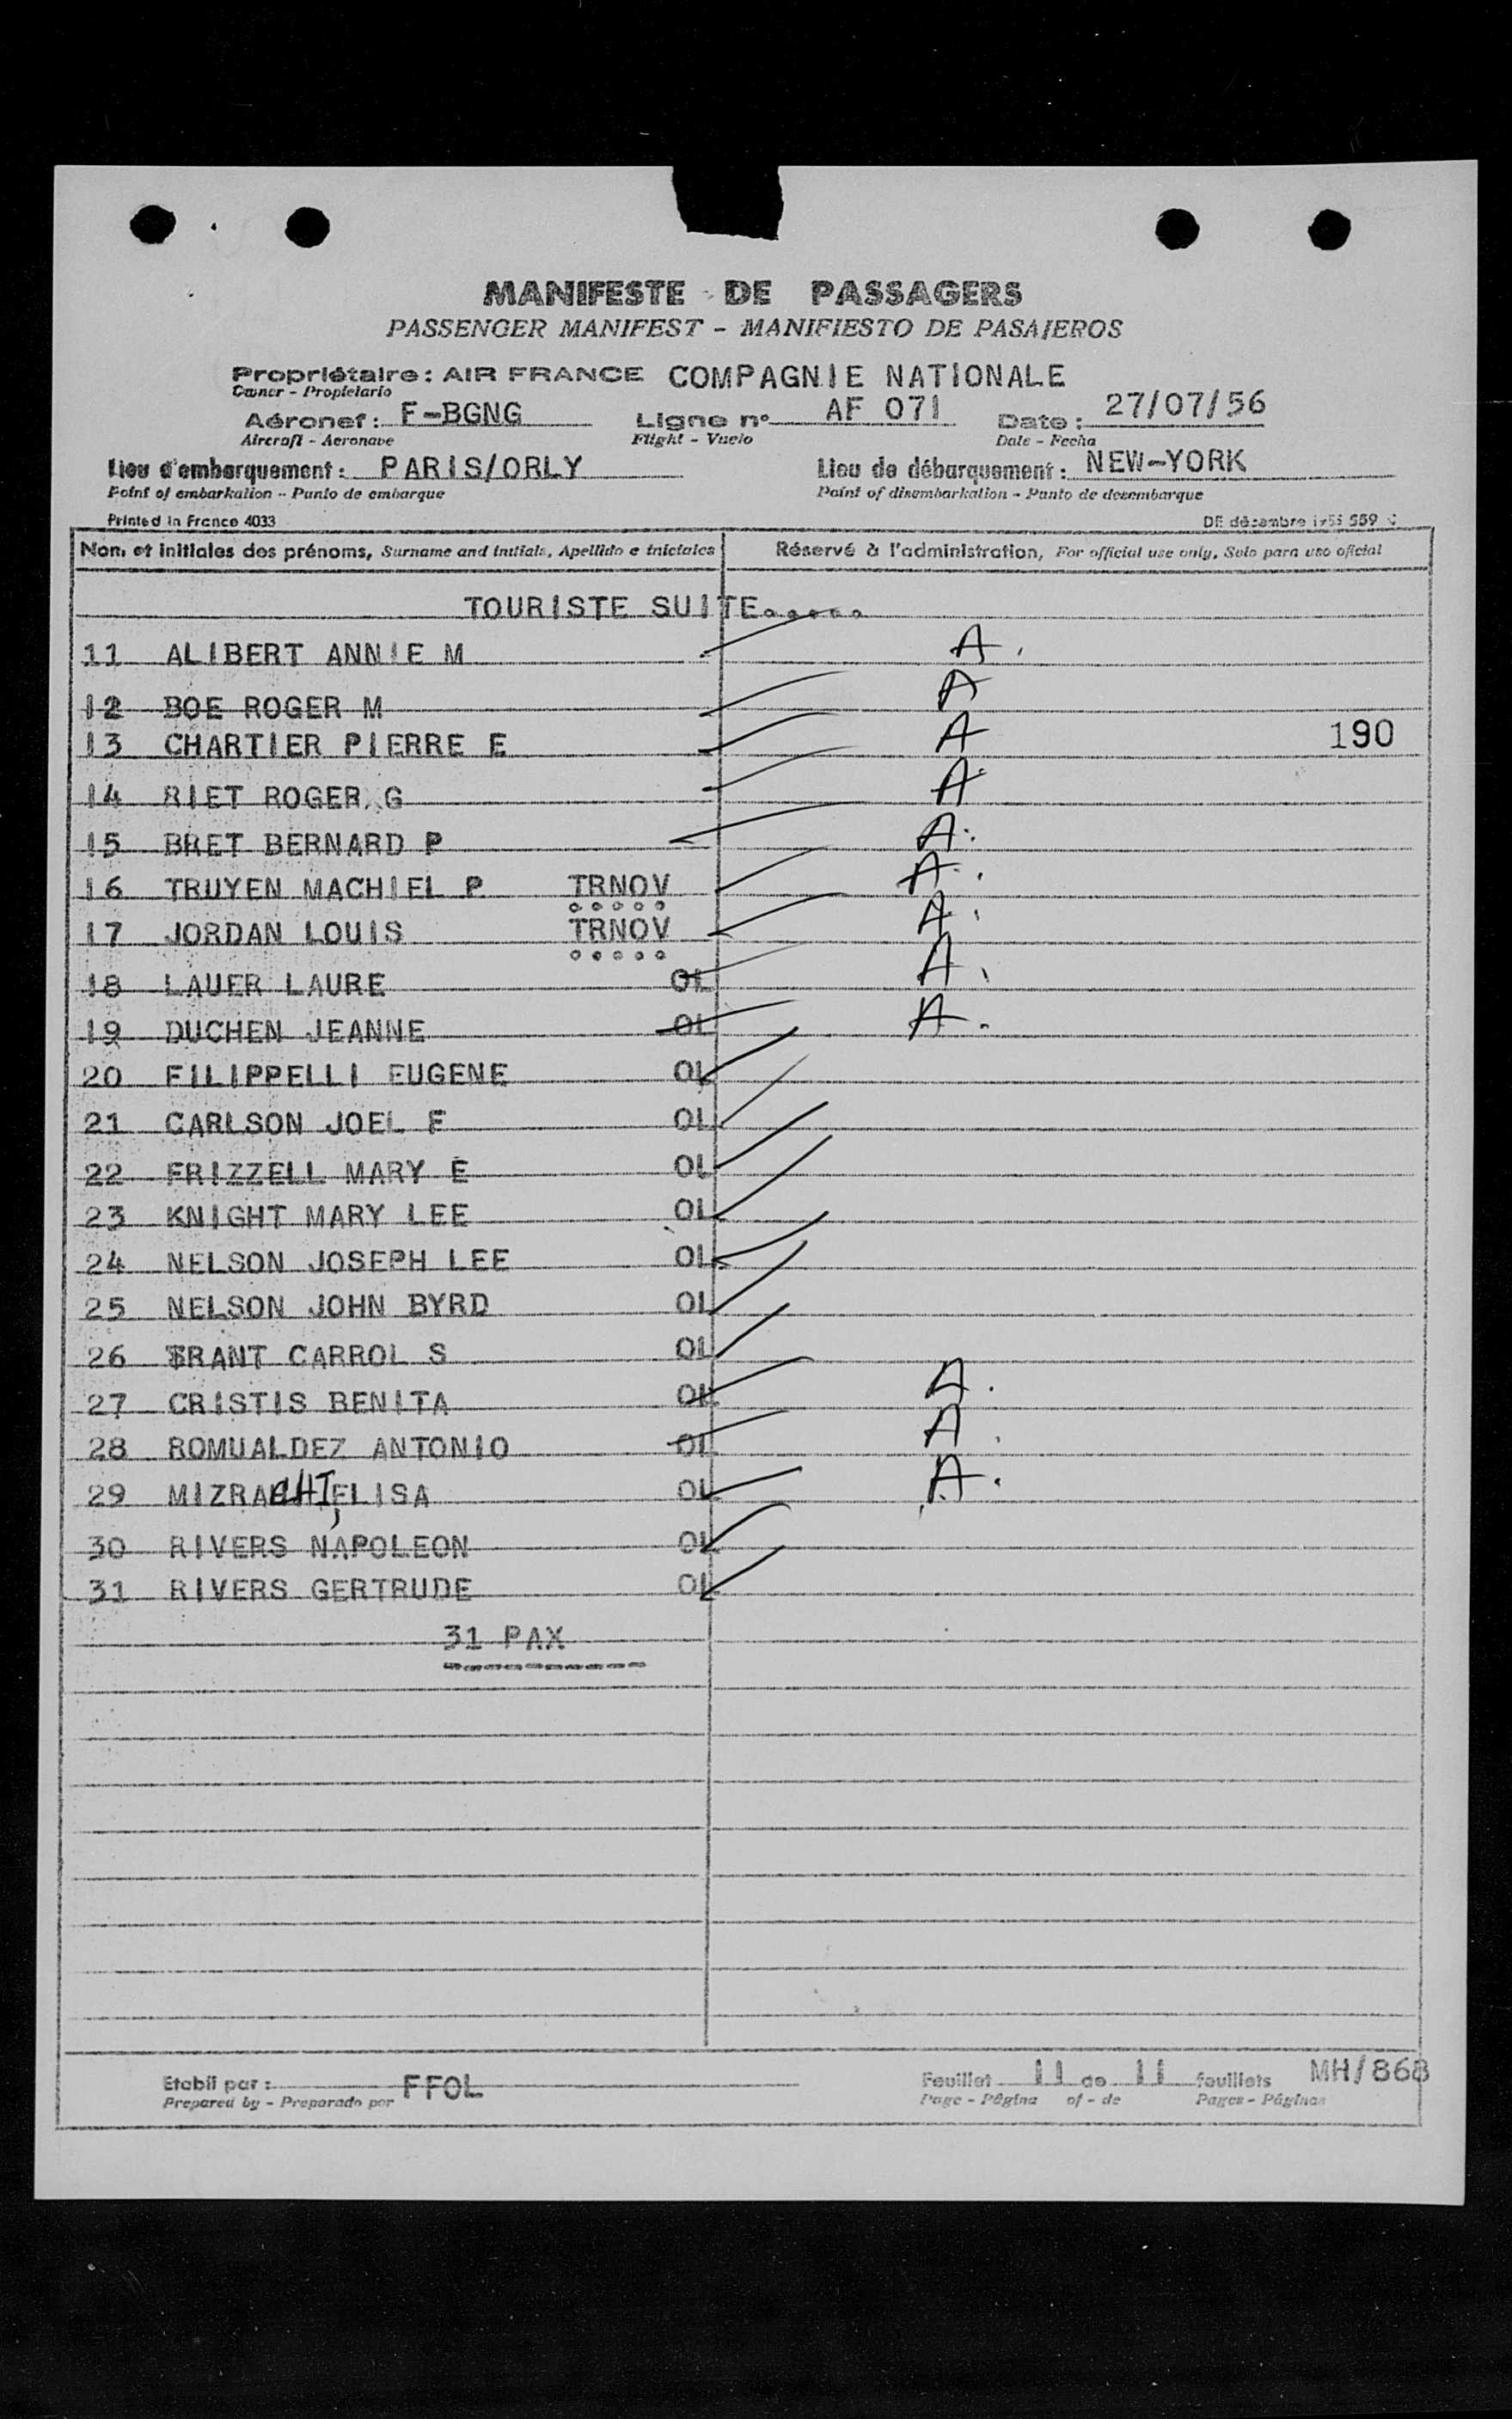 MANIFESTE DE PASSAGERS
PASSENGER MANIFEST - MANIFIESTO DE PASAJEROS
Propriétaire : AIR FRANCE COMPAGNIE NATIONALE
Owner - Propietario
Aéronef : F-BGNG Ligne n° AF 071 Date : 27/07/56
Aircraft - Aeronave Flight - Vuelo Date - Fecha
Lieu d'embarquement : PARIS/ORLY Lieu de débarquement : NEW-YORK
Point of embarkation - Punto de embarque Point of disembarkation - Punto de desembarque
Printed in France 4033 DE décembre 1955 559
Nom et initiales des prénoms, Surname and initials, Apellido e iniciales Réservé à l'administration, For official use only, Solo para uso oficial
TOURISTE SUITE.....
11 ALIBERT ANNIE M A.
12 BOE ROGER M A
13 CHARTIER PIERRE E A 190
14 RIET ROGER G A
15 BRET BERNARD P A.
16 TRUYEN MACHIEL P TRNOV A.
17 JORDAN LOUIS TRNOV A.
18 LAUER LAURE OL A.
19 DUCHEN JEANNE OL A.
20 FILIPPELLI EUGENE OL
21 CARLSON JOEL F OL
22 FRIZZELL MARY E OL
23 KNIGHT MARY LEE OL
24 NELSON JOSEPH LEE OL
25 NELSON JOHN BYRD OL
26 BRANT CARROL S OL
27 CRISTIS BENITA OL A.
28 ROMUALDEZ ANTONIO OL A.
29 MIZRACHI, ELISA OL A.
30 RIVERS NAPOLEON OL
31 RIVERS GERTRUDE OL
31 PAX
Etabli par : FFOL Feuillet 11 de 11 feuillets MH/868
Prepared by - Preparado por Page - Página of - de Pages - Páginas